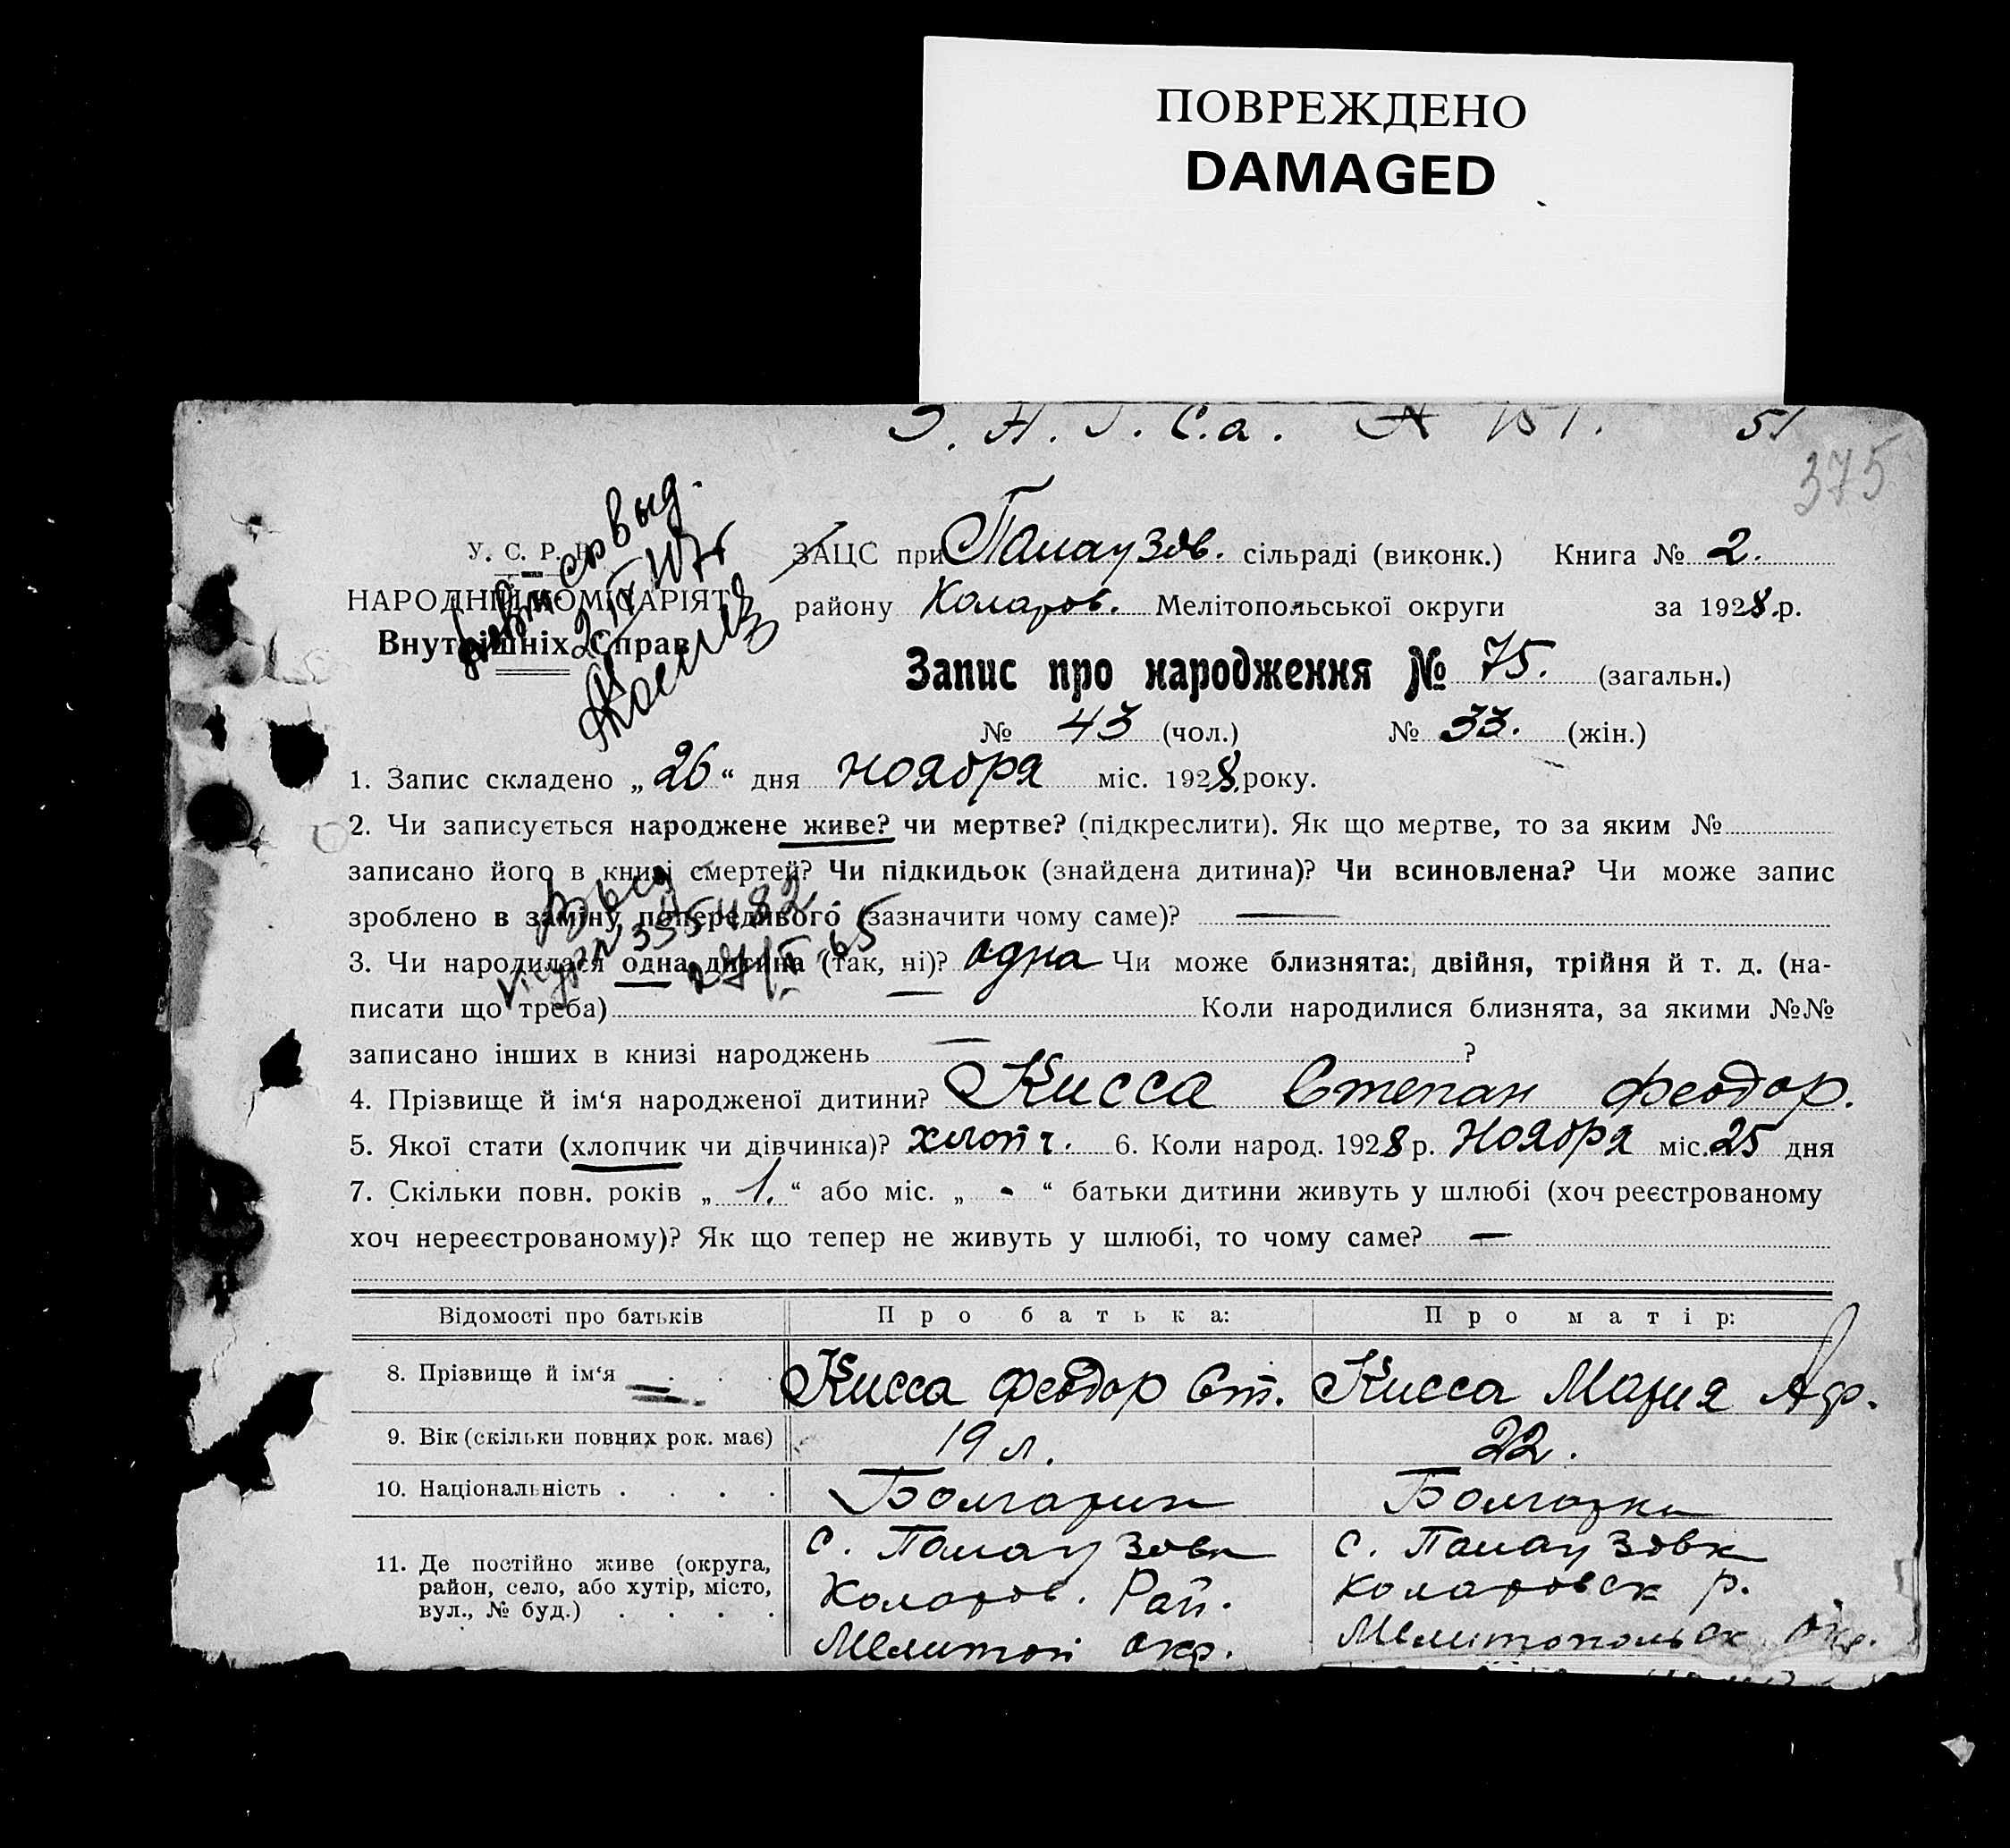 ПОВРЕЖДЕНО
DAMAGED
51
375
У. С. Р. Р.
НАРОДНІЙ КОМІСАРІЯТ
Внутрішніх Справ
ЗАЦС при Палаузов. сільраді (виконк.) Книга № 2.
району Коларов. Мелітопольської округи за 1928 р.
Запис про народження № 75. (загальн.)
№ 43 (чол.) № 33. (жін.)
1. Запис складено „26“ дня ноября міс. 1928 року.
2. Чи записується народжене живе? чи мертве? (підкреслити). Як що мертве, то за яким №
записано його в книзі смертей? Чи підкидьок (знайдена дитина)? Чи всиновлена? Чи може запис
зроблено в заміну попередивого (зазначити чому саме)? —
3. Чи народилася одна дитина (так, ні)? одна Чи може близнята: двійня, трійня й т. д. (на-
писати що треба) — Коли народилися близнята, за якими №№
записано інших в книзі народжень — ?
4. Прізвище й ім‘я народженої дитини? Кисса Степан Феодор.
5. Якої стати (хлопчик чи дівчинка)? хлопч. 6. Коли народ. 1928 р. Ноября міс. 25 дня
7. Скільки повн. років „1.“ або міс. „-“ батьки дитини живуть у шлюбі (хоч реєстрованому
хоч нереєстрованому)? Як що тепер не живуть у шлюбі, то чому саме? —
Відомості про батьків Про батька: Про матір:
8. Прізвище й ім‘я Кисса Феодор Ст. Кисса Мария Аф.
9. Вік (скільки повних рок. має) 19 л. 22.
10. Національність . . . . Болгарин Болгарка
11. Де постійно живе (округа,
район, село, або хутір, місто,
вул., № буд.) . . . .
с. Палаузовк
Коларов. Рай.
Мелитоп окр.
с. Палаузовк
Коларовск р.
Мелитопольск окр.